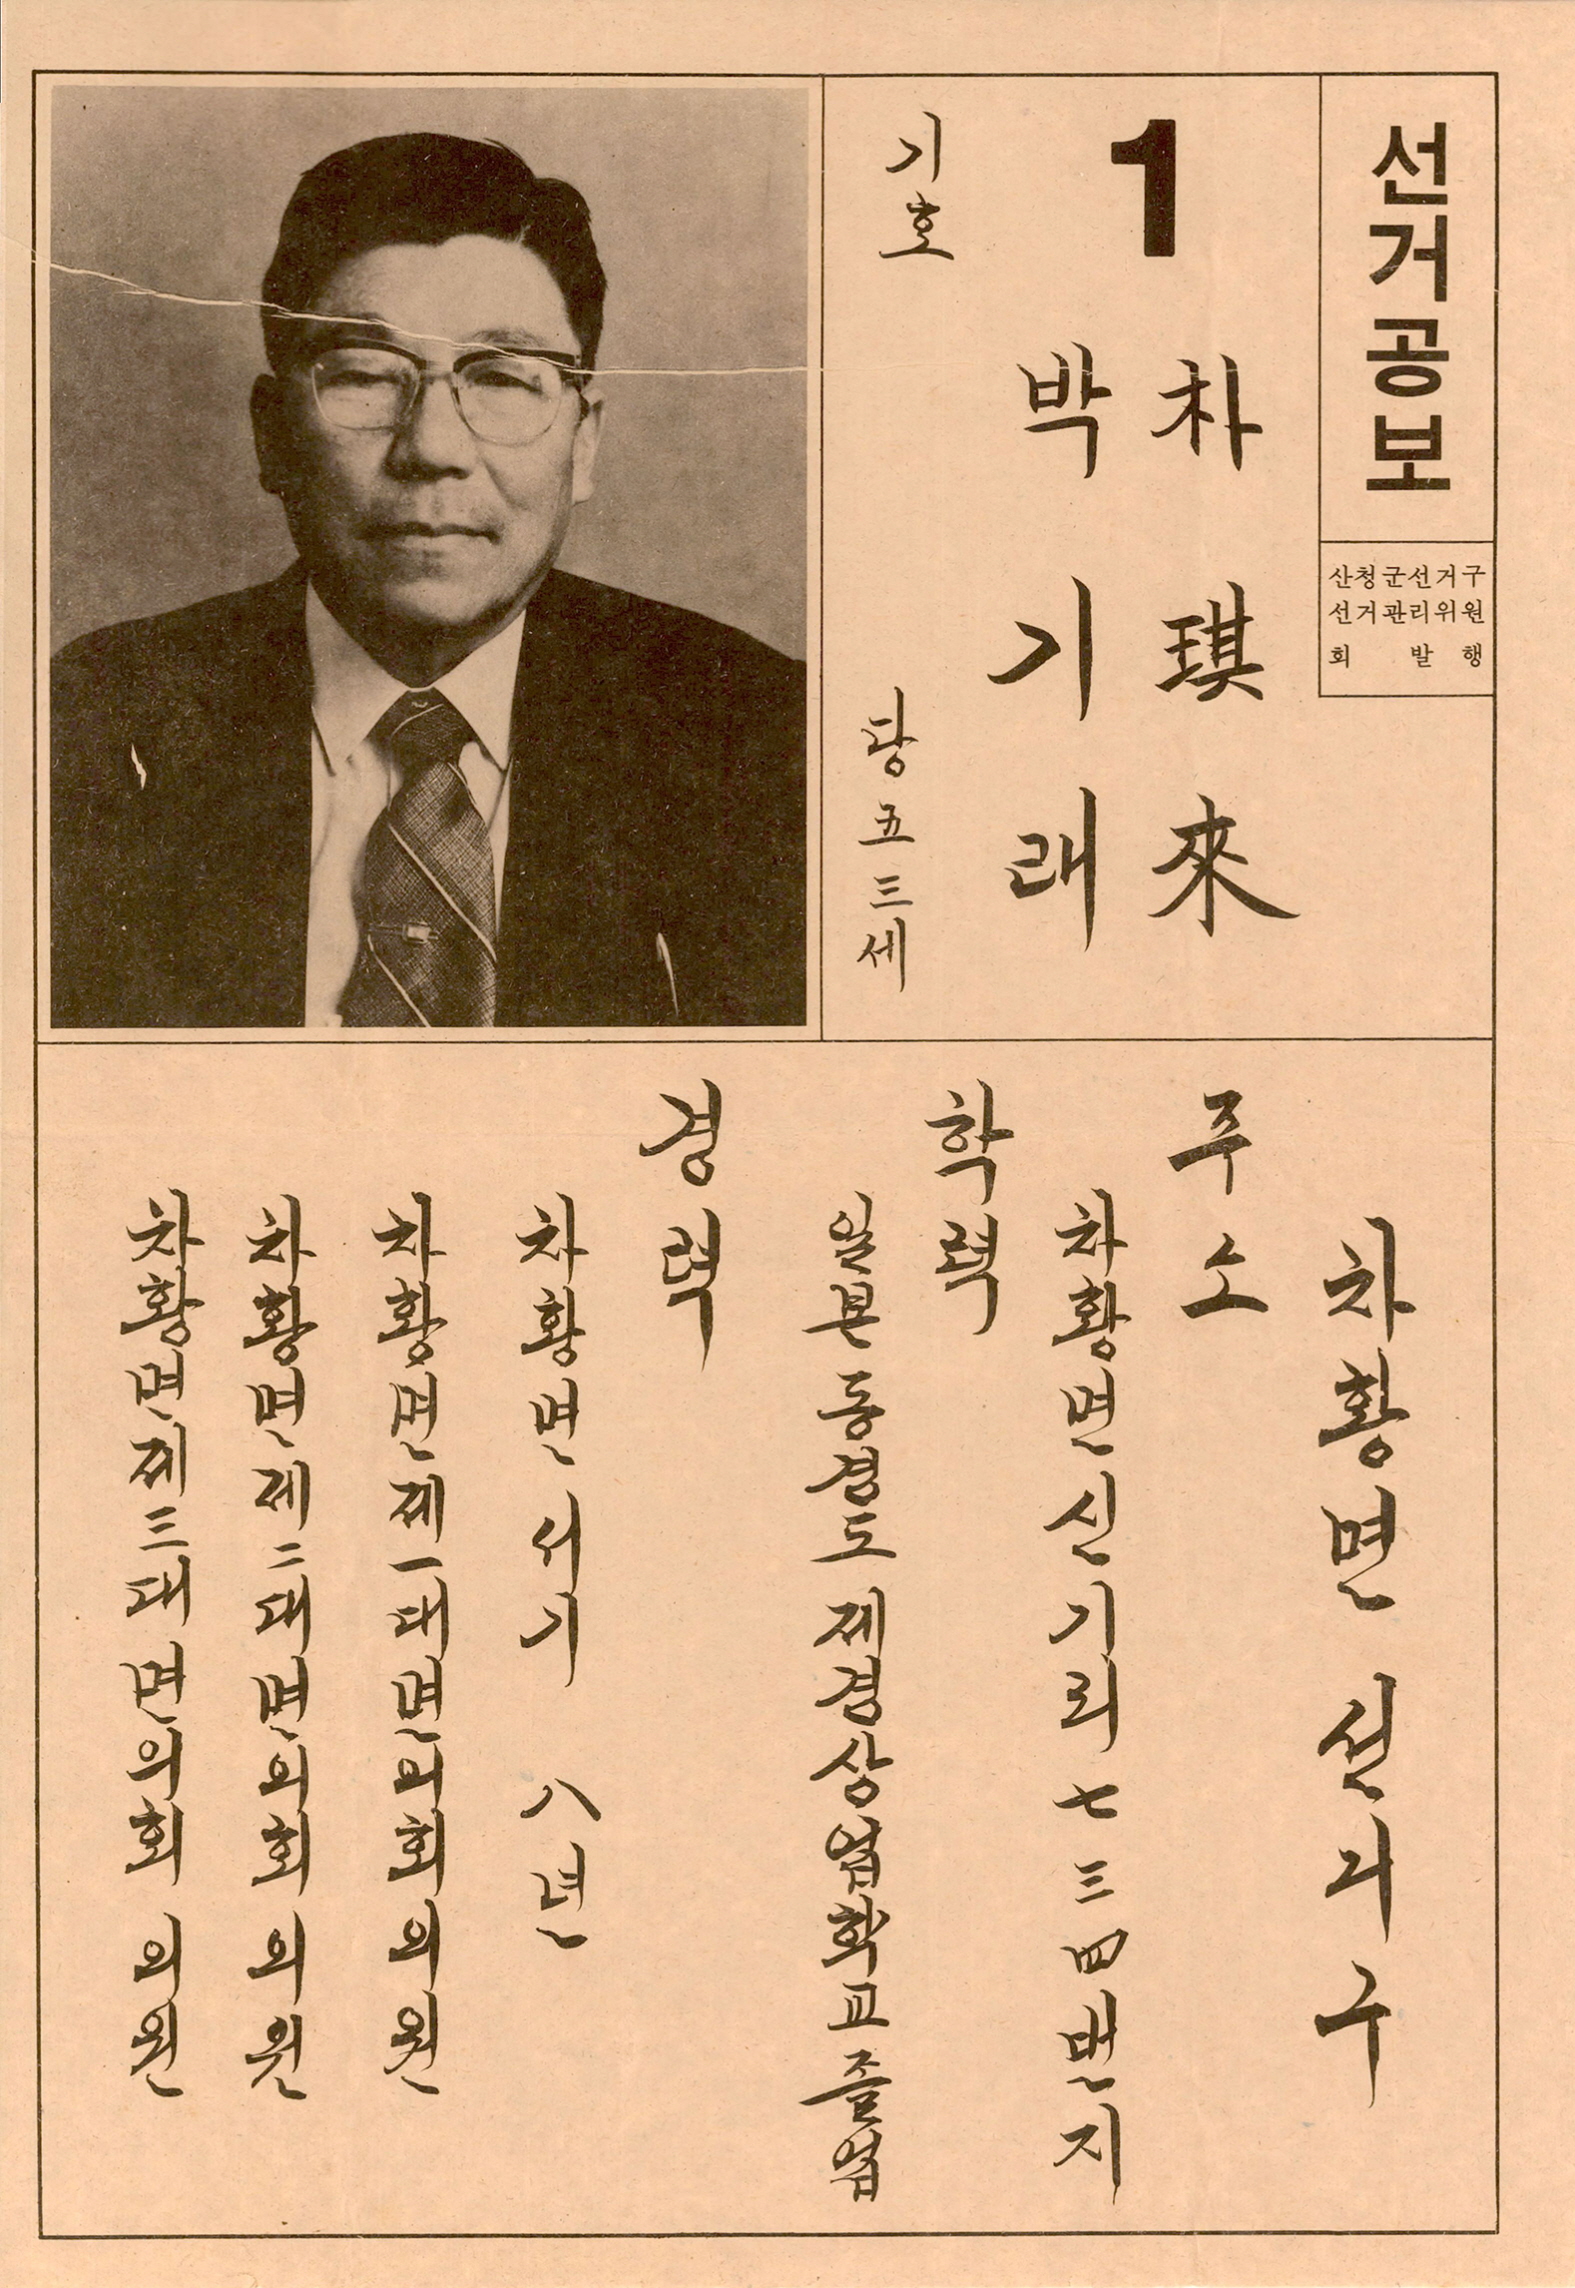 선거공보
산청군선거구
선거관리위원
회 발 행
1
朴琪來
박기래
기호
당五三세
차황면 선거구
주소
차황면 신기리 七三四번지
학력
일본 동경도 제경상업학교 졸업
경력
차황면 서기 八년
차황면 제一대 면의회 의원
차황면 제二대 면의회 의원
차황면 제三대 면의회 의원